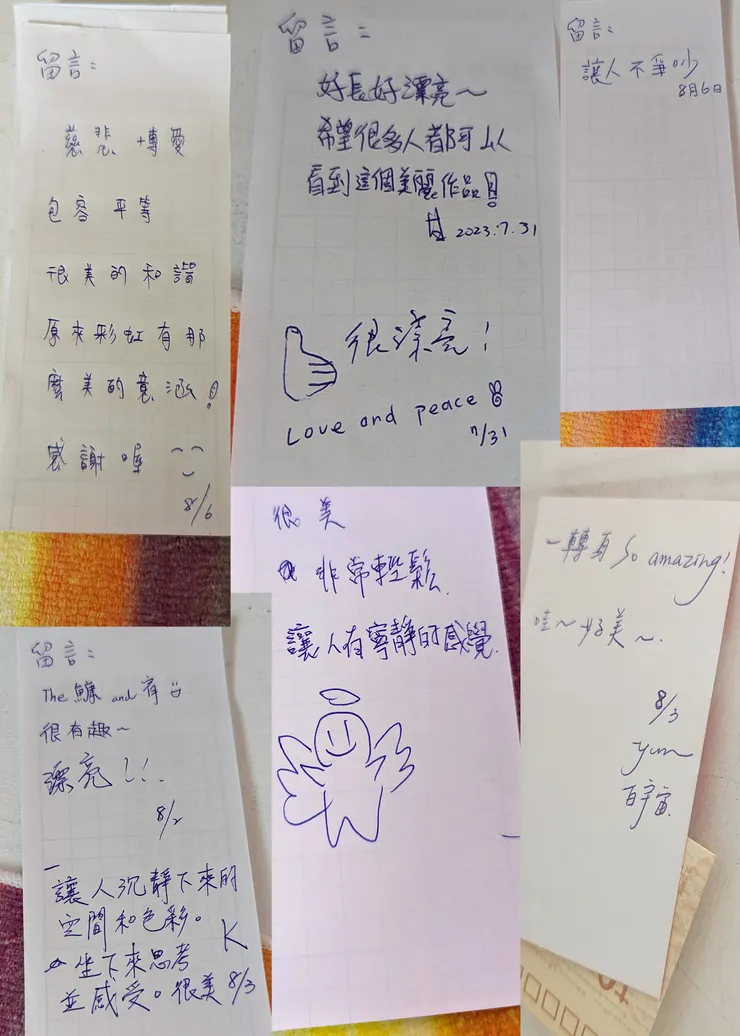 留言：
慈悲 博愛
包容 平等
很美的和諧
原來彩虹有那
麼美的意涵！
感謝喔
8/6
留言：
好長好漂亮～
希望很多人都可以
看到這個美麗作品！
2023.7.31
很漂亮！
Love and peace
7/31
留言：
讓人不爭吵
8月6日
很美
非常輕鬆
讓人有寧靜的感覺.
一轉身 So amazing!
哇～好美～.
8/3
yum
百宇宙
留言：
The 鱇 and 宥
很有趣～
漂亮！！.
8/2
讓人沉靜下來的
空間和色彩。
K
坐下來思考
並感受。很美 8/3
to